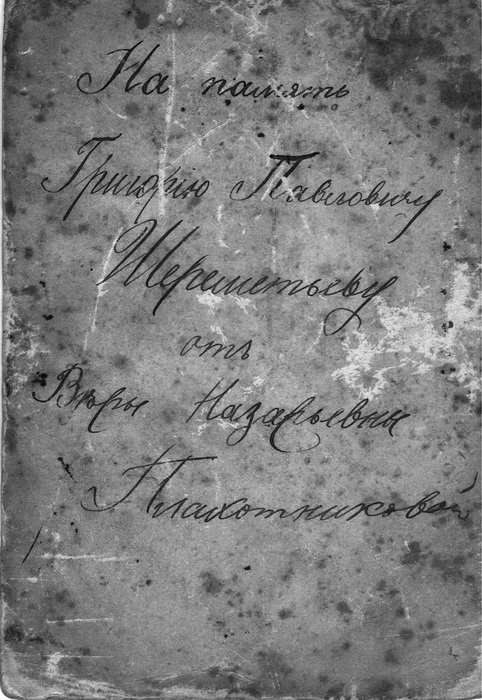 На память
Григорію Павловичу
Шереметьеву
отъ
Вѣры Назарьевны
Плахотниковой